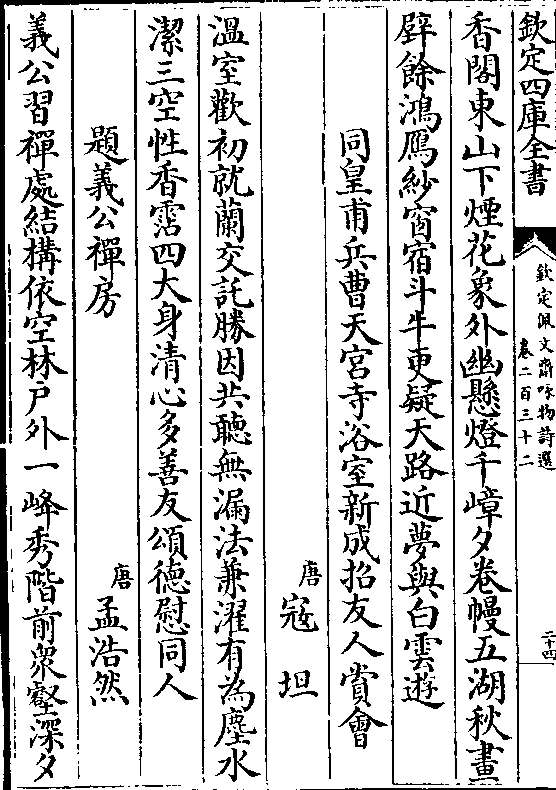 欽定四庫全書
欽定佩文齋咏物詩選
卷二百三十二
二十四
香閣東山下煙花象外幽懸燈千嶂夕卷幔五湖秋畫
壁餘鴻鴈紗窗宿斗牛更疑天路近夢與白雲遊
同皇甫兵曹天宮寺浴室新成招友人賞會
唐 寇坦
溫室歡初就蘭交託勝因共聽無漏法兼濯有為塵水
潔三空性香霑四大身清心多善友頌德慰同人
題義公禪房
唐 孟浩然
義公習禪處結構依空林戶外一峰秀階前衆壑深夕